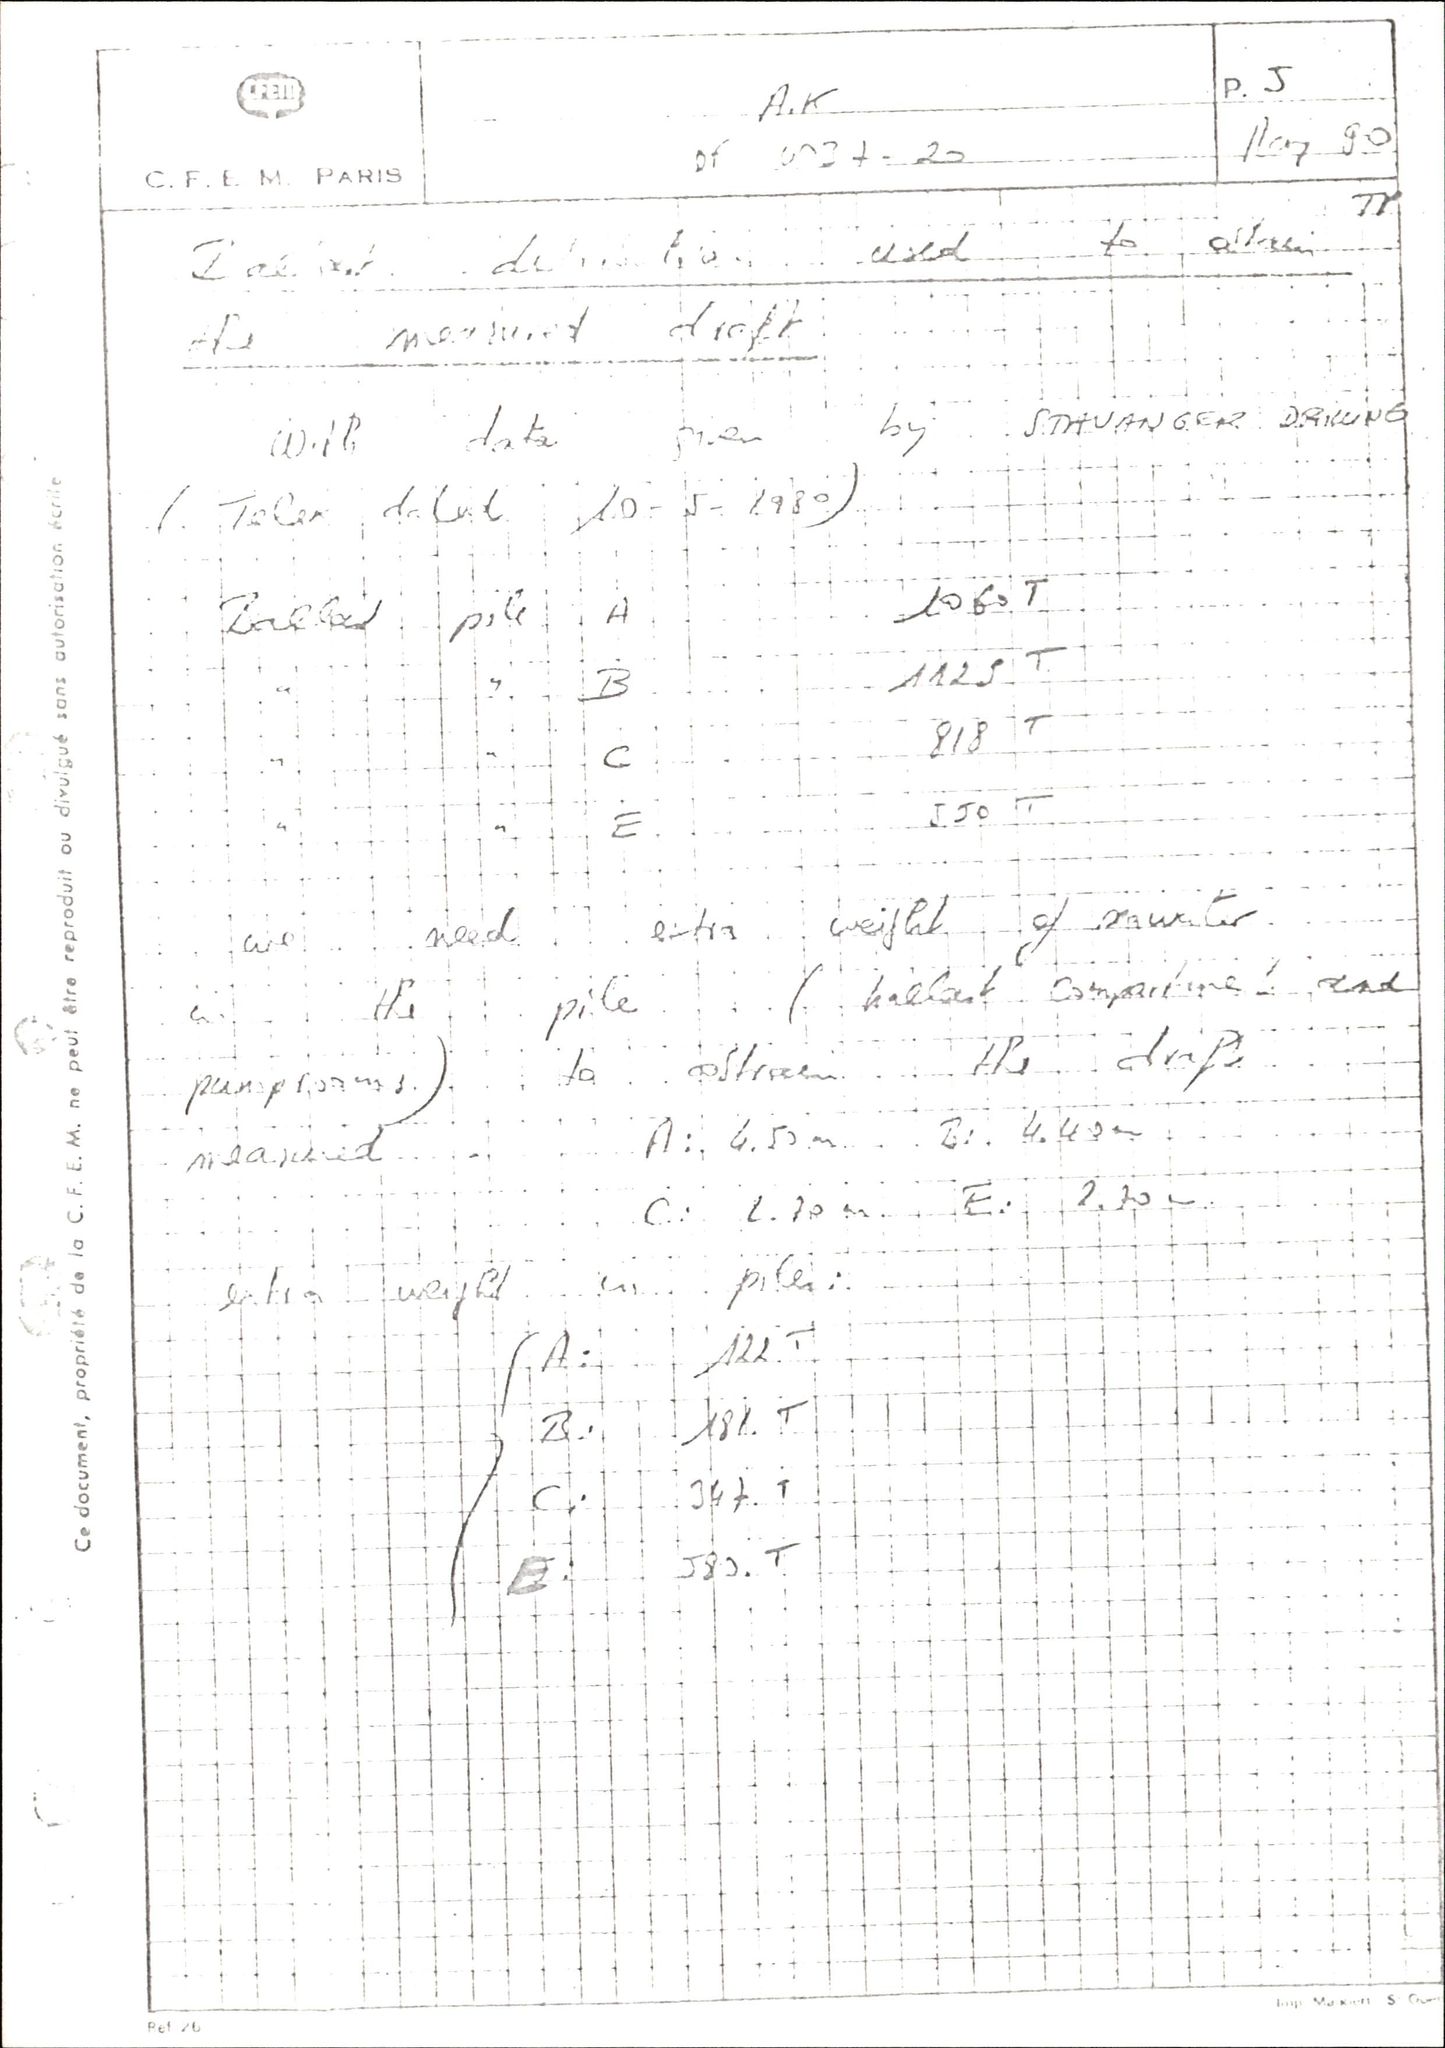 CFEM
C. F. E. M. PARIS
A.K
Df 37-20
P. 5
May 80
Ballast distribution used to attain
the measured draft
With data given by STAVANGER DRILLING
( Telex dated 10-5-1980)
Ballast pile A 1060 T
" " B 1125 T
" " C 818 T
" " E 550 T
we need extra weight of seawater
in the piles ( ballast compartment and
pumprooms) to obtain the drafts
measured A: 4.50 m B: 4.40 m
C: 2.70 m E: 2.70 m
extra weight in piles:
A: 122 T
B: 181. T
C: 347. T
E: 583. T
Ce document, propriété de la C. F. E. M. ne peut être reproduit ou divulgué sans autorisation écrite
Ref. 26
Imp.